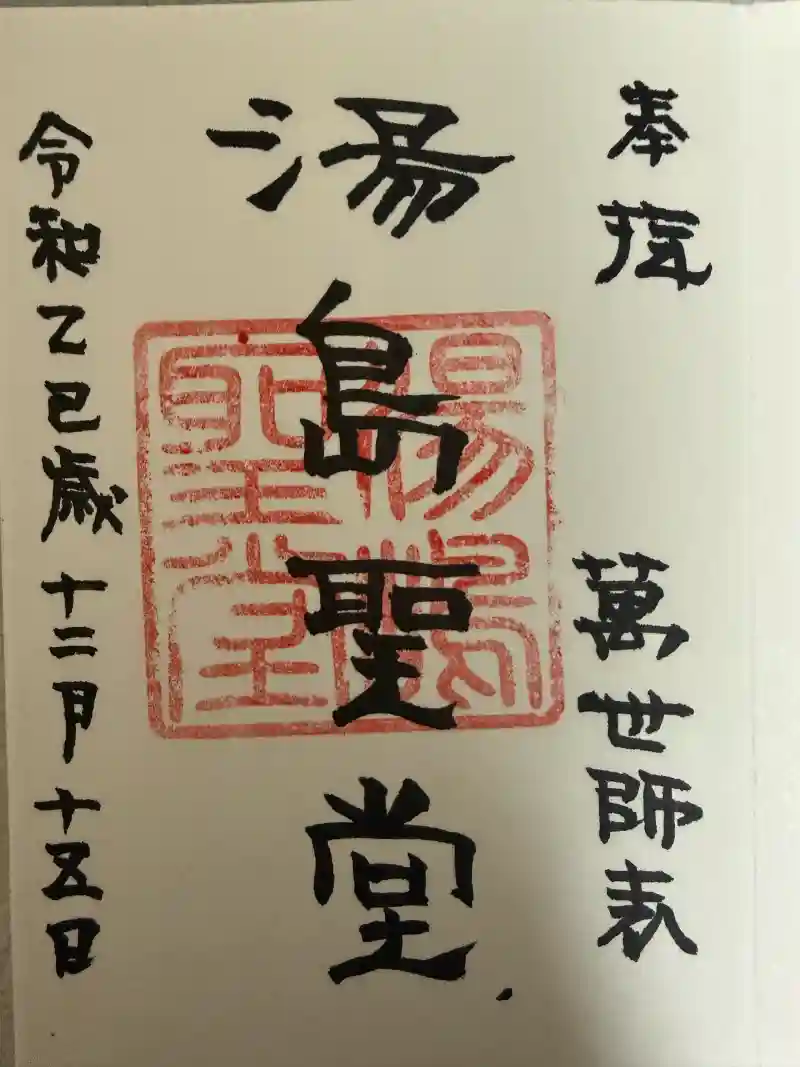 奉拝
萬世師表
湯島聖堂
湯島
聖堂
令和乙巳歳十二月十五日